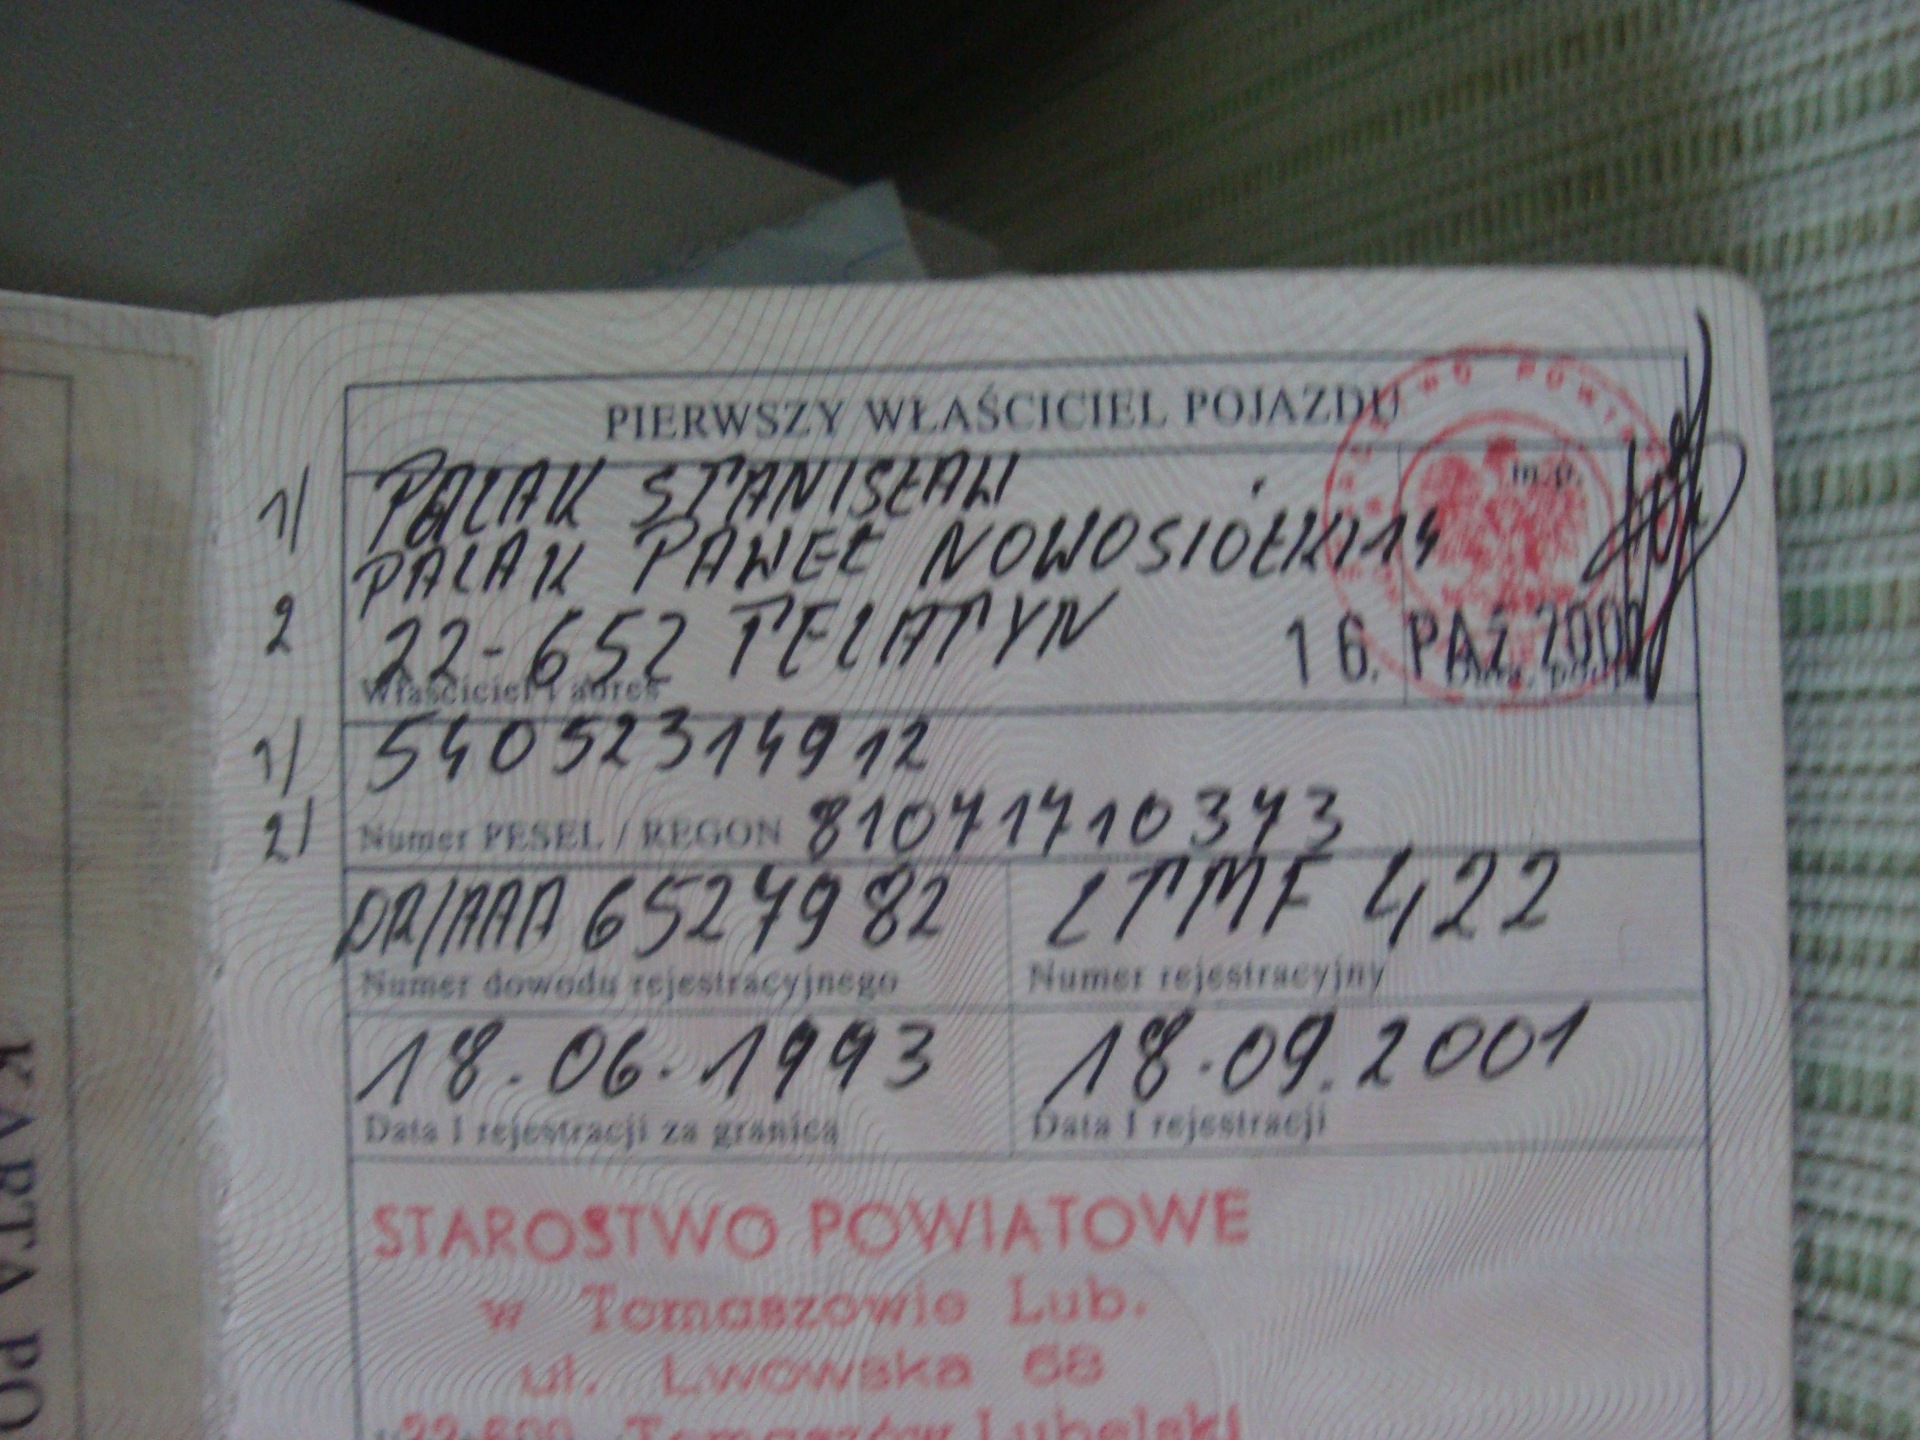 PIERWSZY WŁAŚCICIEL POJAZDU
m.p.
1/ PALAK STANISŁAW
PALAK PAWEŁ NOWOSIÓŁKI 14
2 22-652 TELATYN
16. PAŹ. 200
Właściciel i adres
1/ 54052314912
2/ Numer PESEL / REGON 81071710373
DR/AAA 6527982 LTMF 422
Numer dowodu rejestracyjnego Numer rejestracyjny
18.06.1993 18.09.2001
Data I rejestracji za granicą Data I rejestracji
STAROSTWO POWIATOWE
w Tomaszowie Lub.
ul. Lwowska 68
22-600 Tomaszów Lubelski
KARTA PO